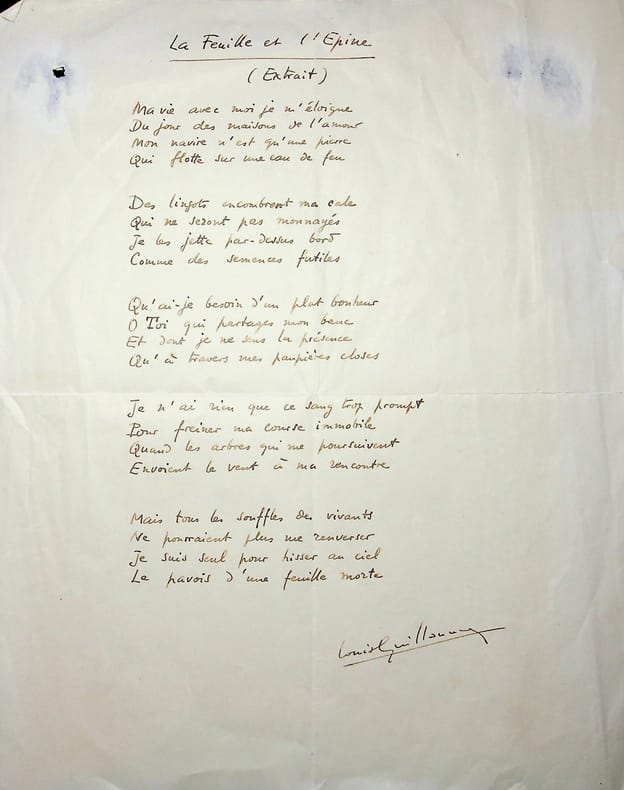 La Feuille et l'Epine
(Extrait)
Ma vie avec moi je m'éloigne
Du jour des maisons de l'amour
Mon navire n'est qu'une pierre
Qui flotte sur une eau de feu
Des lingots encombrent ma cale
Qui ne seront pas monnayés
Je les jette par-dessus bord
Comme des semences futiles
Qu'ai-je besoin d'un plat bonheur
O Toi qui partages mon banc
Et dont je ne sens la présence
Qu'à travers mes paupières closes
Je n'ai rien que ce sang trop prompt
Pour freiner ma course immobile
Quand les arbres qui me poursuivent
Envoient le vent à ma rencontre
Mais tous les souffles des vivants
Ne pourraient plus me renverser
Je suis seul pour hisser au ciel
Le pavois d'une feuille morte
Louis Guillaume